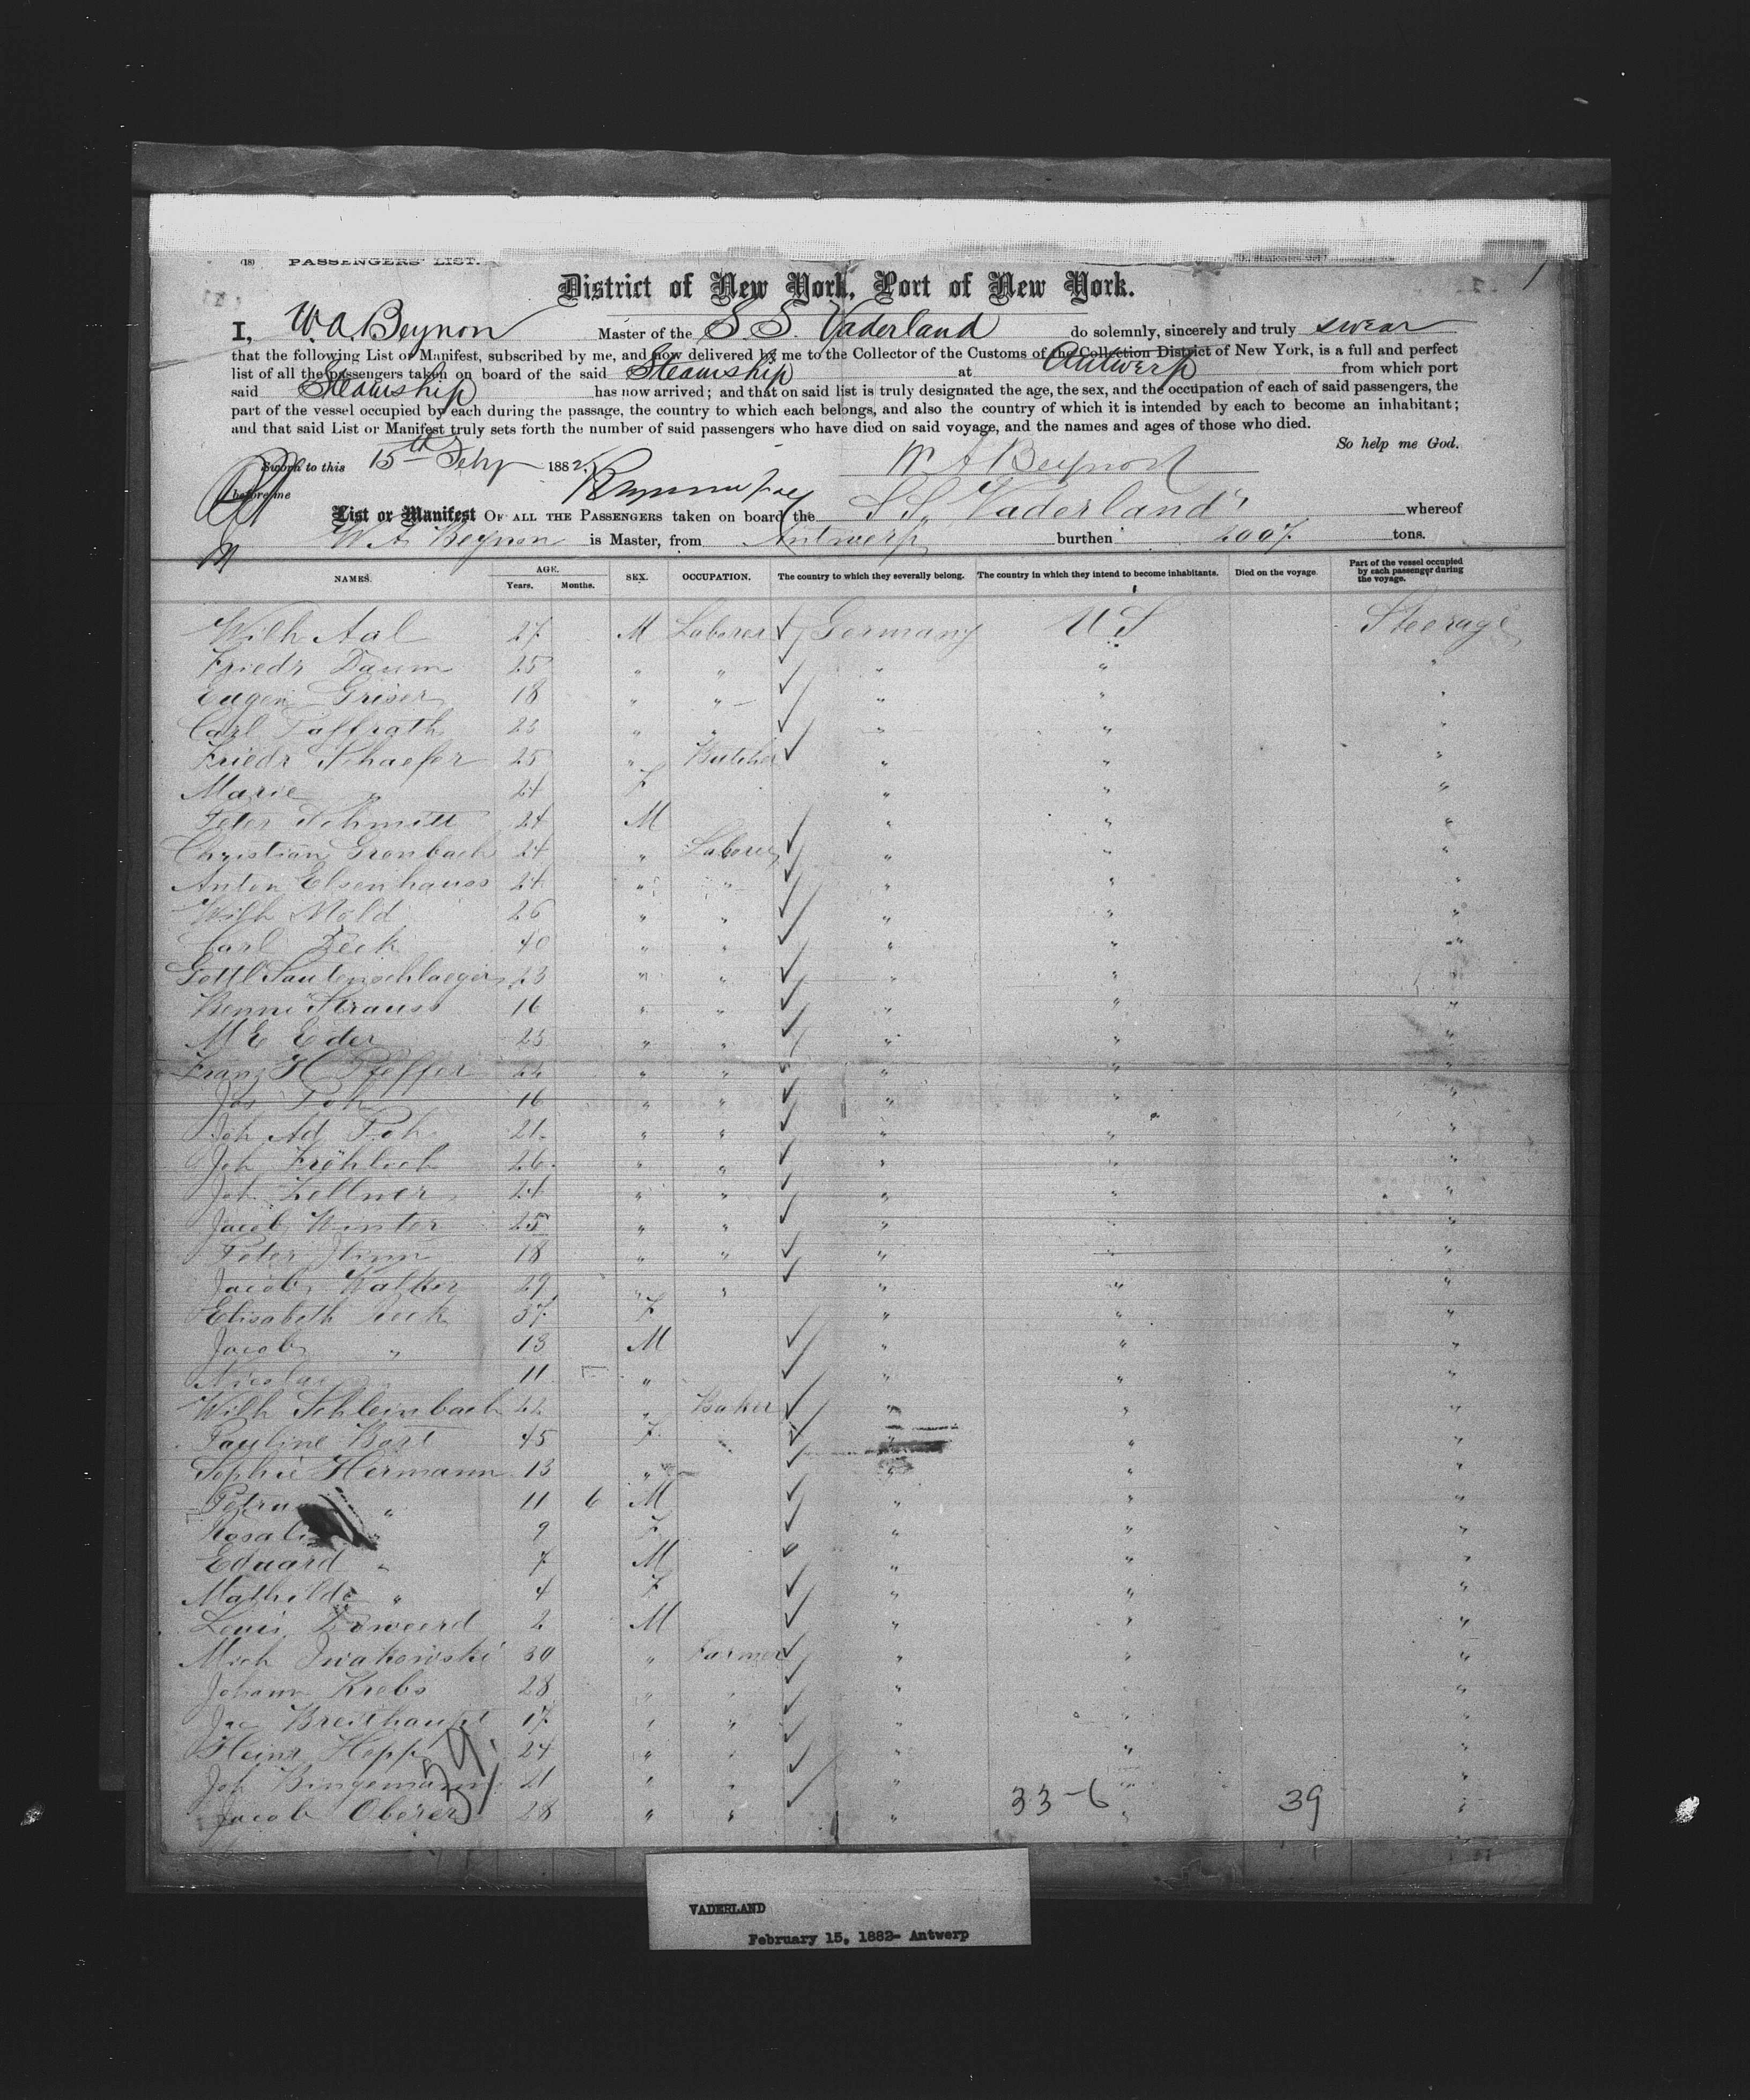 (18) PASSENGERS' LIST. 1
District of New York, Port of New York.
I, W. A. Beynon Master of the S. S. Vaderland do solemnly, sincerely and truly swear
that the following List or Manifest, subscribed by me, and now delivered by me to the Collector of the Customs of the Collection District of New York, is a full and perfect
list of all the passengers taken on board of the said Steamship at Antwerp from which port
said Steamship has now arrived; and that on said list is truly designated the age, the sex, and the occupation of each of said passengers, the
part of the vessel occupied by each during the passage, the country to which each belongs, and also the country of which it is intended by each to become an inhabitant;
and that said List or Manifest truly sets forth the number of said passengers who have died on said voyage, and the names and ages of those who died.
So help me God.
Sworn to this 15th Feby 1882 W A Beynon
before me
List or Manifest OF ALL THE PASSENGERS taken on board the S.S. "Vaderland" whereof
W A Beynon is Master, from Antwerp burthen 2007 tons.
NAMES. AGE. Years. Months. SEX. OCCUPATION. The country to which they severally belong. The country in which they intend to become inhabitants. Died on the voyage. Part of the vessel occupied by each passenger during the voyage.
Wilh Aal 27 M Laborer Germany U S Steerage
Friedr Daum 25 " " " " "
Eugen Griser 18 " " " " "
Carl Paffrath 23 " " " " "
Friedr Schaefer 25 " Butcher " " "
Marie " 24 F " " "
Peter Schmitt 24 M " " "
Christian Gronbach 24 " Laborer " " "
Anton Elsenhauss 24 " " " " "
Wilh Mold 26 " " " " "
Carl Zeck 40 " " " " "
Gottl Lautenschlaeger 23 " " " " "
Benni Strauss 16 " " " " "
M E Eder 23 " " " " "
Franz H Pfeffer 22 " " " " "
Jos Poh 16 " " " " "
Joh Ad Poh 21 " " " " "
Joh Fröhlich 26 " " " " "
Joh Zellner 24 " " " " "
Jacob Winter 25 " " " " "
Peter 18 " " " " "
Jacob Walker 29 " " " " "
Elisabeth Zeck 37 F " " "
Jacob " 13 M " " "
Nicolas " 11 " " " "
Wilh Schleinbach 22 " Baker " " "
Pauline Bart 45 F " " "
Sophie Hermann 13 " " " "
Petrus " 11 6 M " " "
Rosalie " 9 F " " "
Eduard " 7 M " " "
Mathilde " 4 F " " "
Louis 2 M " " "
Mich Iwakowski 30 " Farmer " " "
Johann Krebs 28 " " " " "
Jac Breithaupt 17 " " " " "
Heinr Hepp 24 " " " " "
Joh Bingemann 21 " " " " "
Jacob Oberer 28 " " " " "
39. 33-6 39
VADERLAND
February 15, 1882- Antwerp